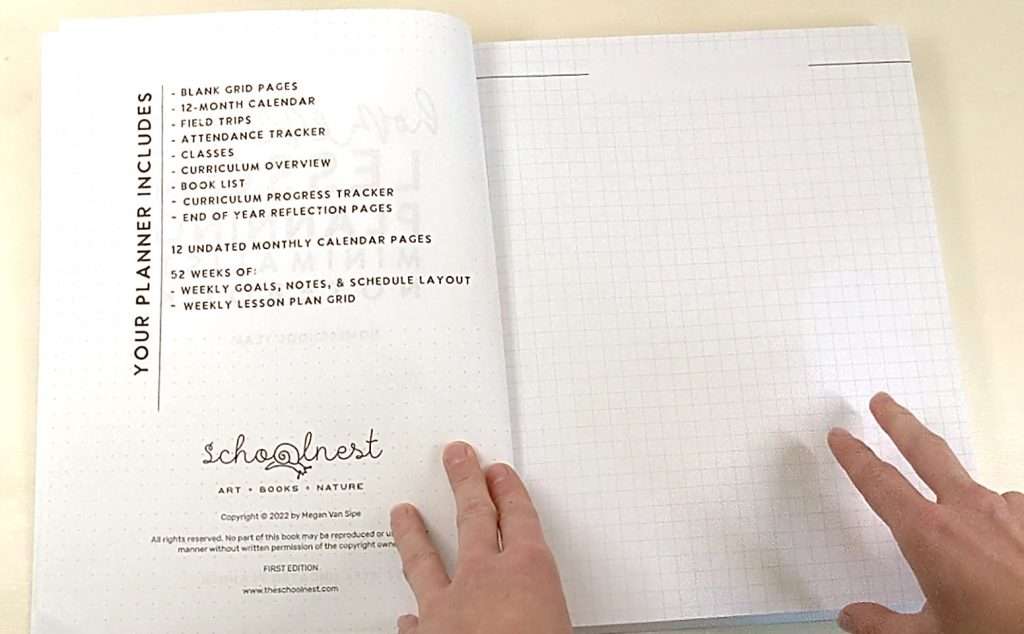 YOUR PLANNER INCLUDES
- BLANK GRID PAGES
- 12-MONTH CALENDAR
- FIELD TRIPS
- ATTENDANCE TRACKER
- CLASSES
- CURRICULUM OVERVIEW
- BOOK LIST
- CURRICULUM PROGRESS TRACKER
- END OF YEAR REFLECTION PAGES
12 UNDATED MONTHLY CALENDAR PAGES
52 WEEKS OF:
- WEEKLY GOALS, NOTES, & SCHEDULE LAYOUT
- WEEKLY LESSON PLAN GRID
schoolnest
ART • BOOKS • NATURE
Copyright © 2022 by Megan Van Sipe
All rights reserved. No part of this book may be reproduced or
manner without written permission of the copyright
FIRST EDITION
www.theschoolnest.com